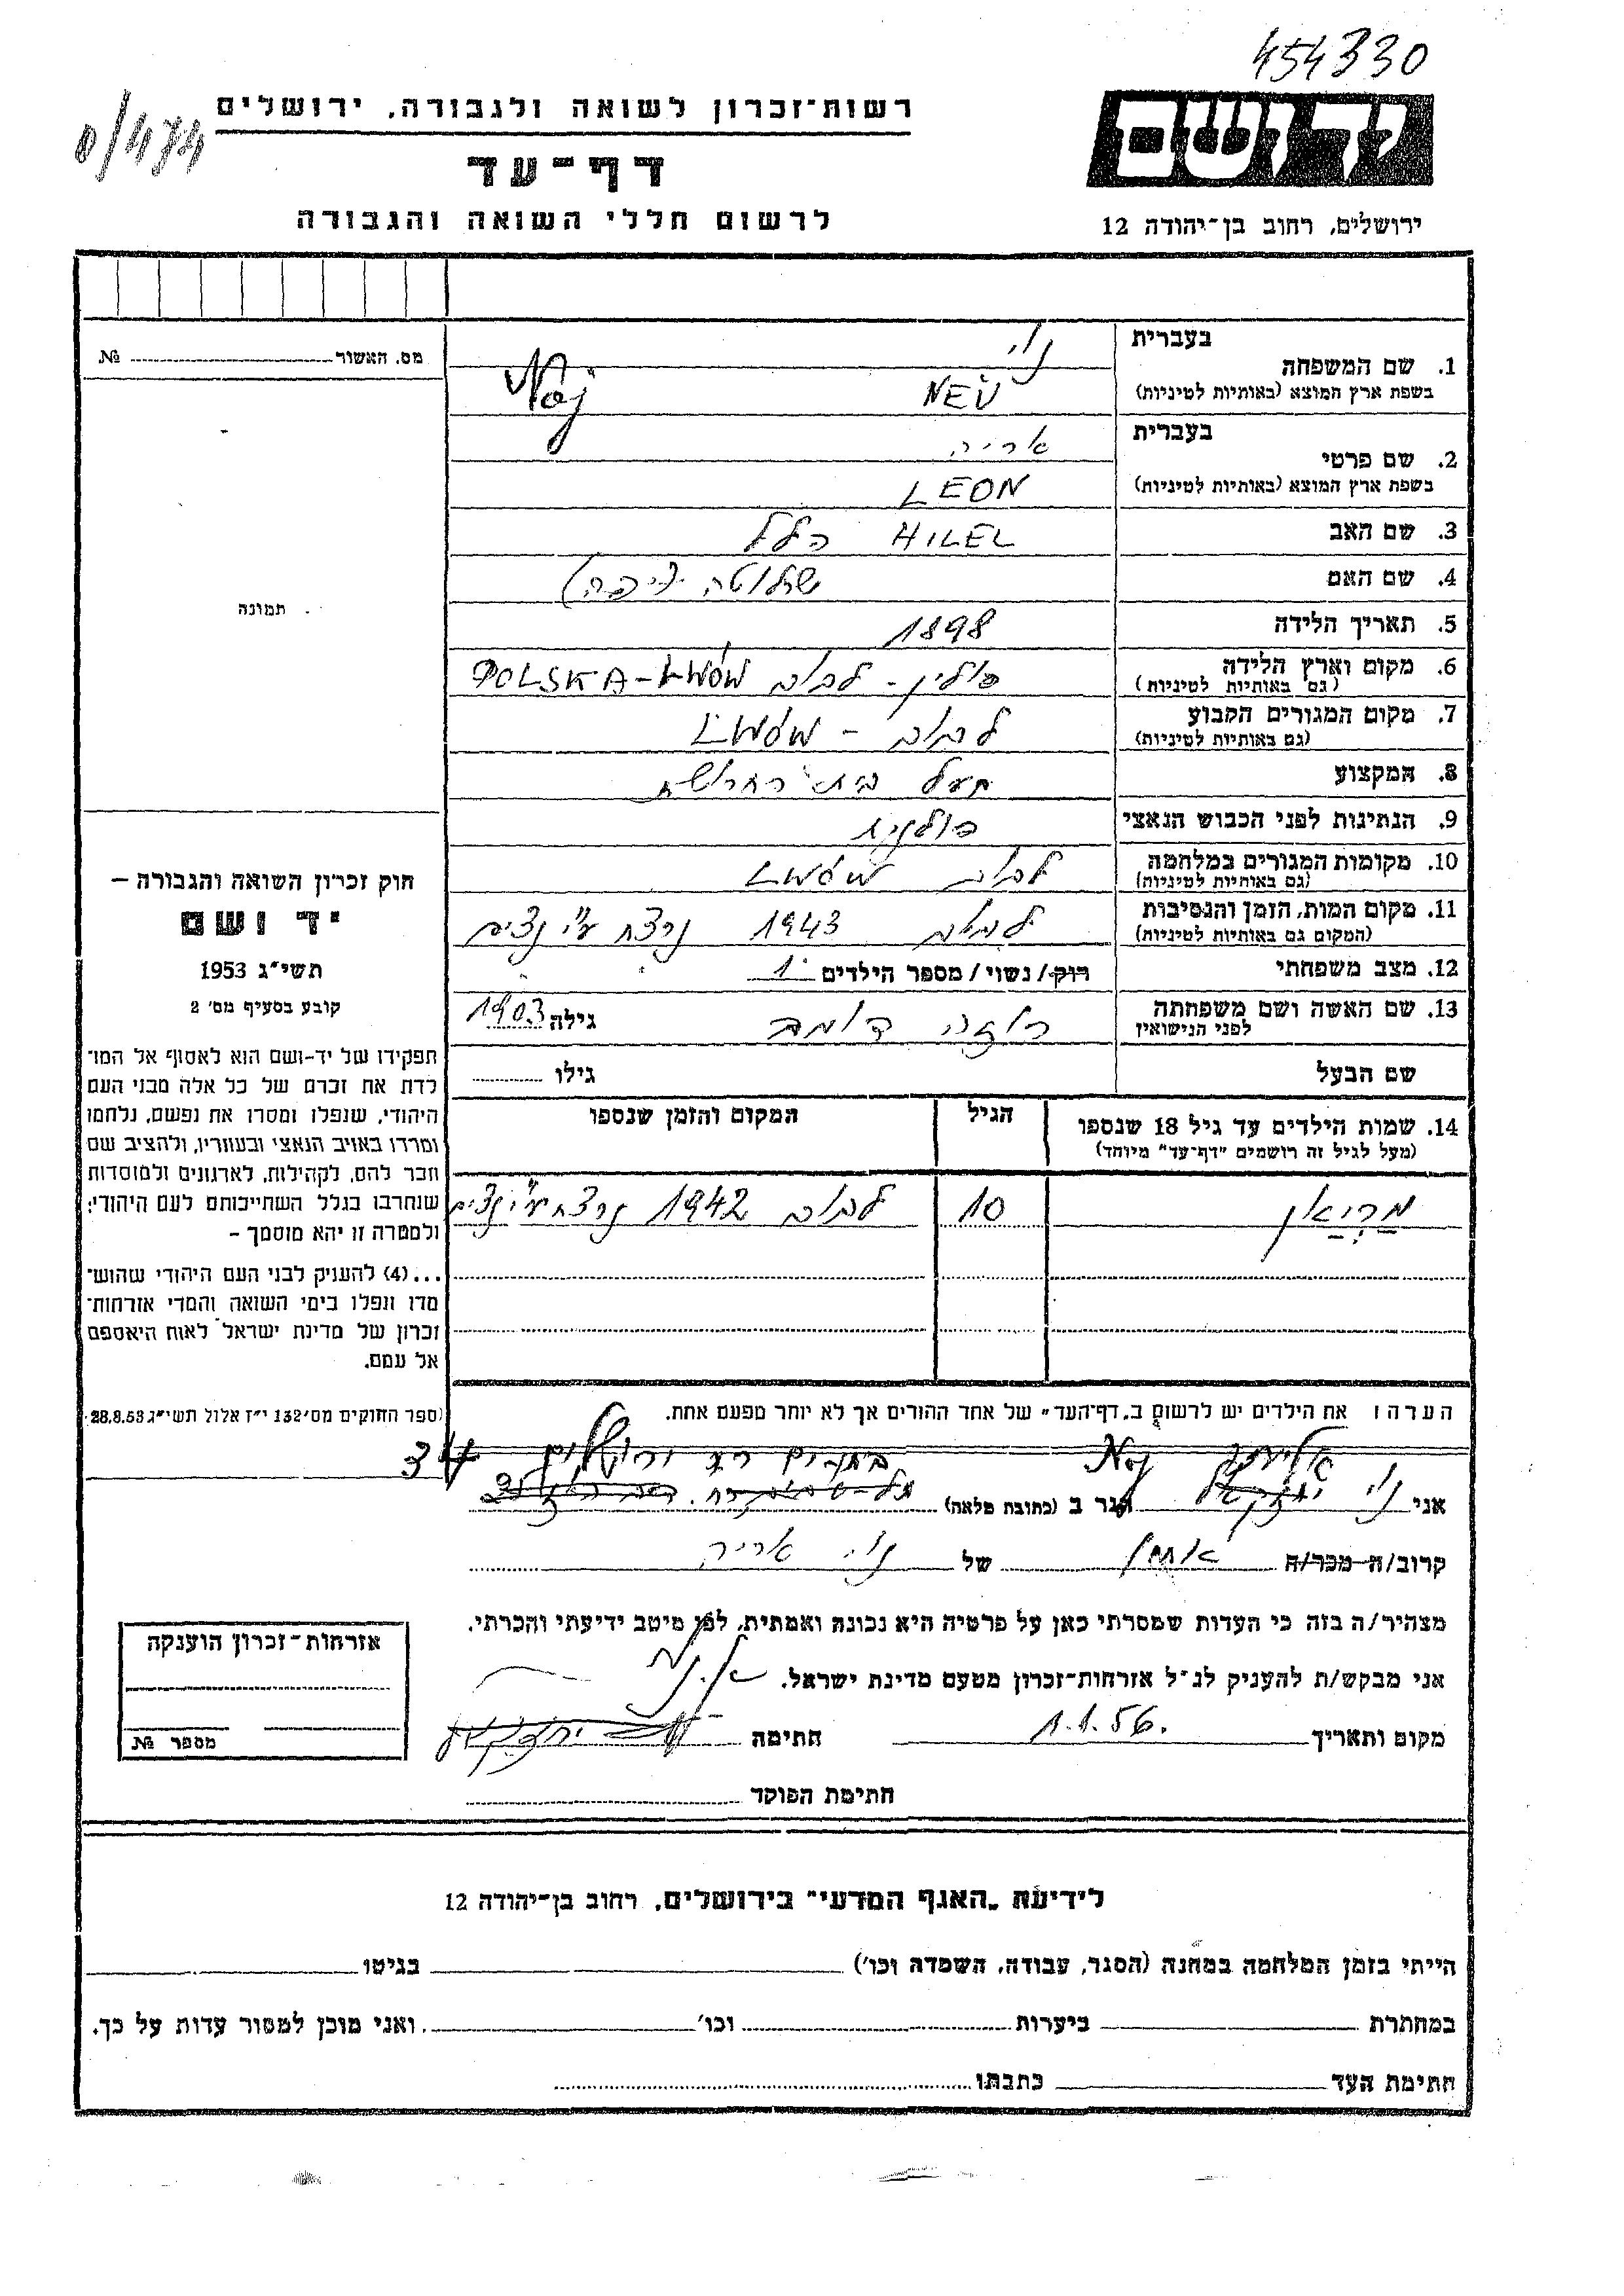 454330
0/474
רשות־זכרון לשואה ולגבורה, ירושלים
יד ושם
דף־עד
לרשום חללי השואה והגבורה
ירושלים, רחוב בן־יהודה 12
מס. האשור №
תמונה
בעברית
1. שם המשפחה
נוי
בשפת ארץ המוצא (באותיות לטיניות)
NEU Noj
בעברית
2. שם פרטי
אריה
בשפת ארץ המוצא (באותיות לטיניות)
LEON
3. שם האב HILEL הלל
4. שם האם שרלוטה
5. תאריך הלידה 1898
6. מקום וארץ הלידה פולין - לבוב POLSKA-LWÓW
(גם באותיות לטיניות)
7. מקום המגורים הקבוע לבוב - LWÓW
(גם באותיות לטיניות)
8. המקצוע בית חרושת
9. הנתינות לפני הכבוש הנאצי פולנית
10. מקומות המגורים במלחמה לבוב LWÓW
(גם באותיות לטיניות)
11. מקום המות, הזמן והנסיבות לבוב 1943 נרצח ע"י נצים
(המקום גם באותיות לטיניות)
12. מצב משפחתי רוק/נשוי/מספר הילדים 1
13. שם האשה ושם משפחתה רוזה דומב גילה 1903
לפני הנישואין
שם הבעל גילו
14. שמות הילדים עד גיל 18 שנספו הגיל המקום והזמן שנספו
(מעל לגיל זה רושמים "דף־עד" מיוחד)
מריאן 10 לבוב 1942 נרצח ע"י נצים
חוק זכרון השואה והגבורה –
יד ושם
תשי"ג 1953
קובע בסעיף מס' 2
תפקידו של יד-ושם הוא לאסוף אל המו־
לדת את זכרם של כל אלה מבני העם
היהודי, שנפלו ומסרו את נפשם, נלחמו
ומרדו באויב הנאצי ובעוזריו, ולהציב שם
וזכר להם, לקהילות, לארגונים ולמוסדות
שנחרבו בגלל השתייכותם לעם היהודי;
ולמטרה זו יהא מוסמך –
...(4) להעניק לבני העם היהודי שהוש־
מדו ונפלו בימי השואה והמרי אזרחות־
זכרון של מדינת ישראל לאות היאספם
אל עמם.
(ספר החוקים מס' 132 י"ז אלול תשי"ג 28.8.53
הערה: את הילדים יש לרשום ב„דף־העד" של אחד ההורים אך לא יותר מפעם אחת.
Noj ירושלים
אני נוי יחזקאל הגר ב (כתובת מלאה)
קרוב/ה מכר/ה אחיין של נוי אריה
מצהיר/ה בזה כי העדות שמסרתי כאן על פרטיה היא נכונה ואמתית, לפי מיטב ידיעתי והכרתי.
אני מבקש/ת להעניק לנ"ל אזרחות־זכרון מטעם מדינת ישראל.
מקום ותאריך 1.1.56. חתימה
חתימת הפוקד
אזרחות־זכרון הוענקה
מספר №
לידיעת „האגף המדעי" בירושלים, רחוב בן־יהודה 12
הייתי בזמן המלחמה במחנה (הסגר, עבודה, השמדה וכו') בגיטו
במחתרת ביערות וכו' ואני מוכן למסור עדות על כך.
חתימת העד כתבתו